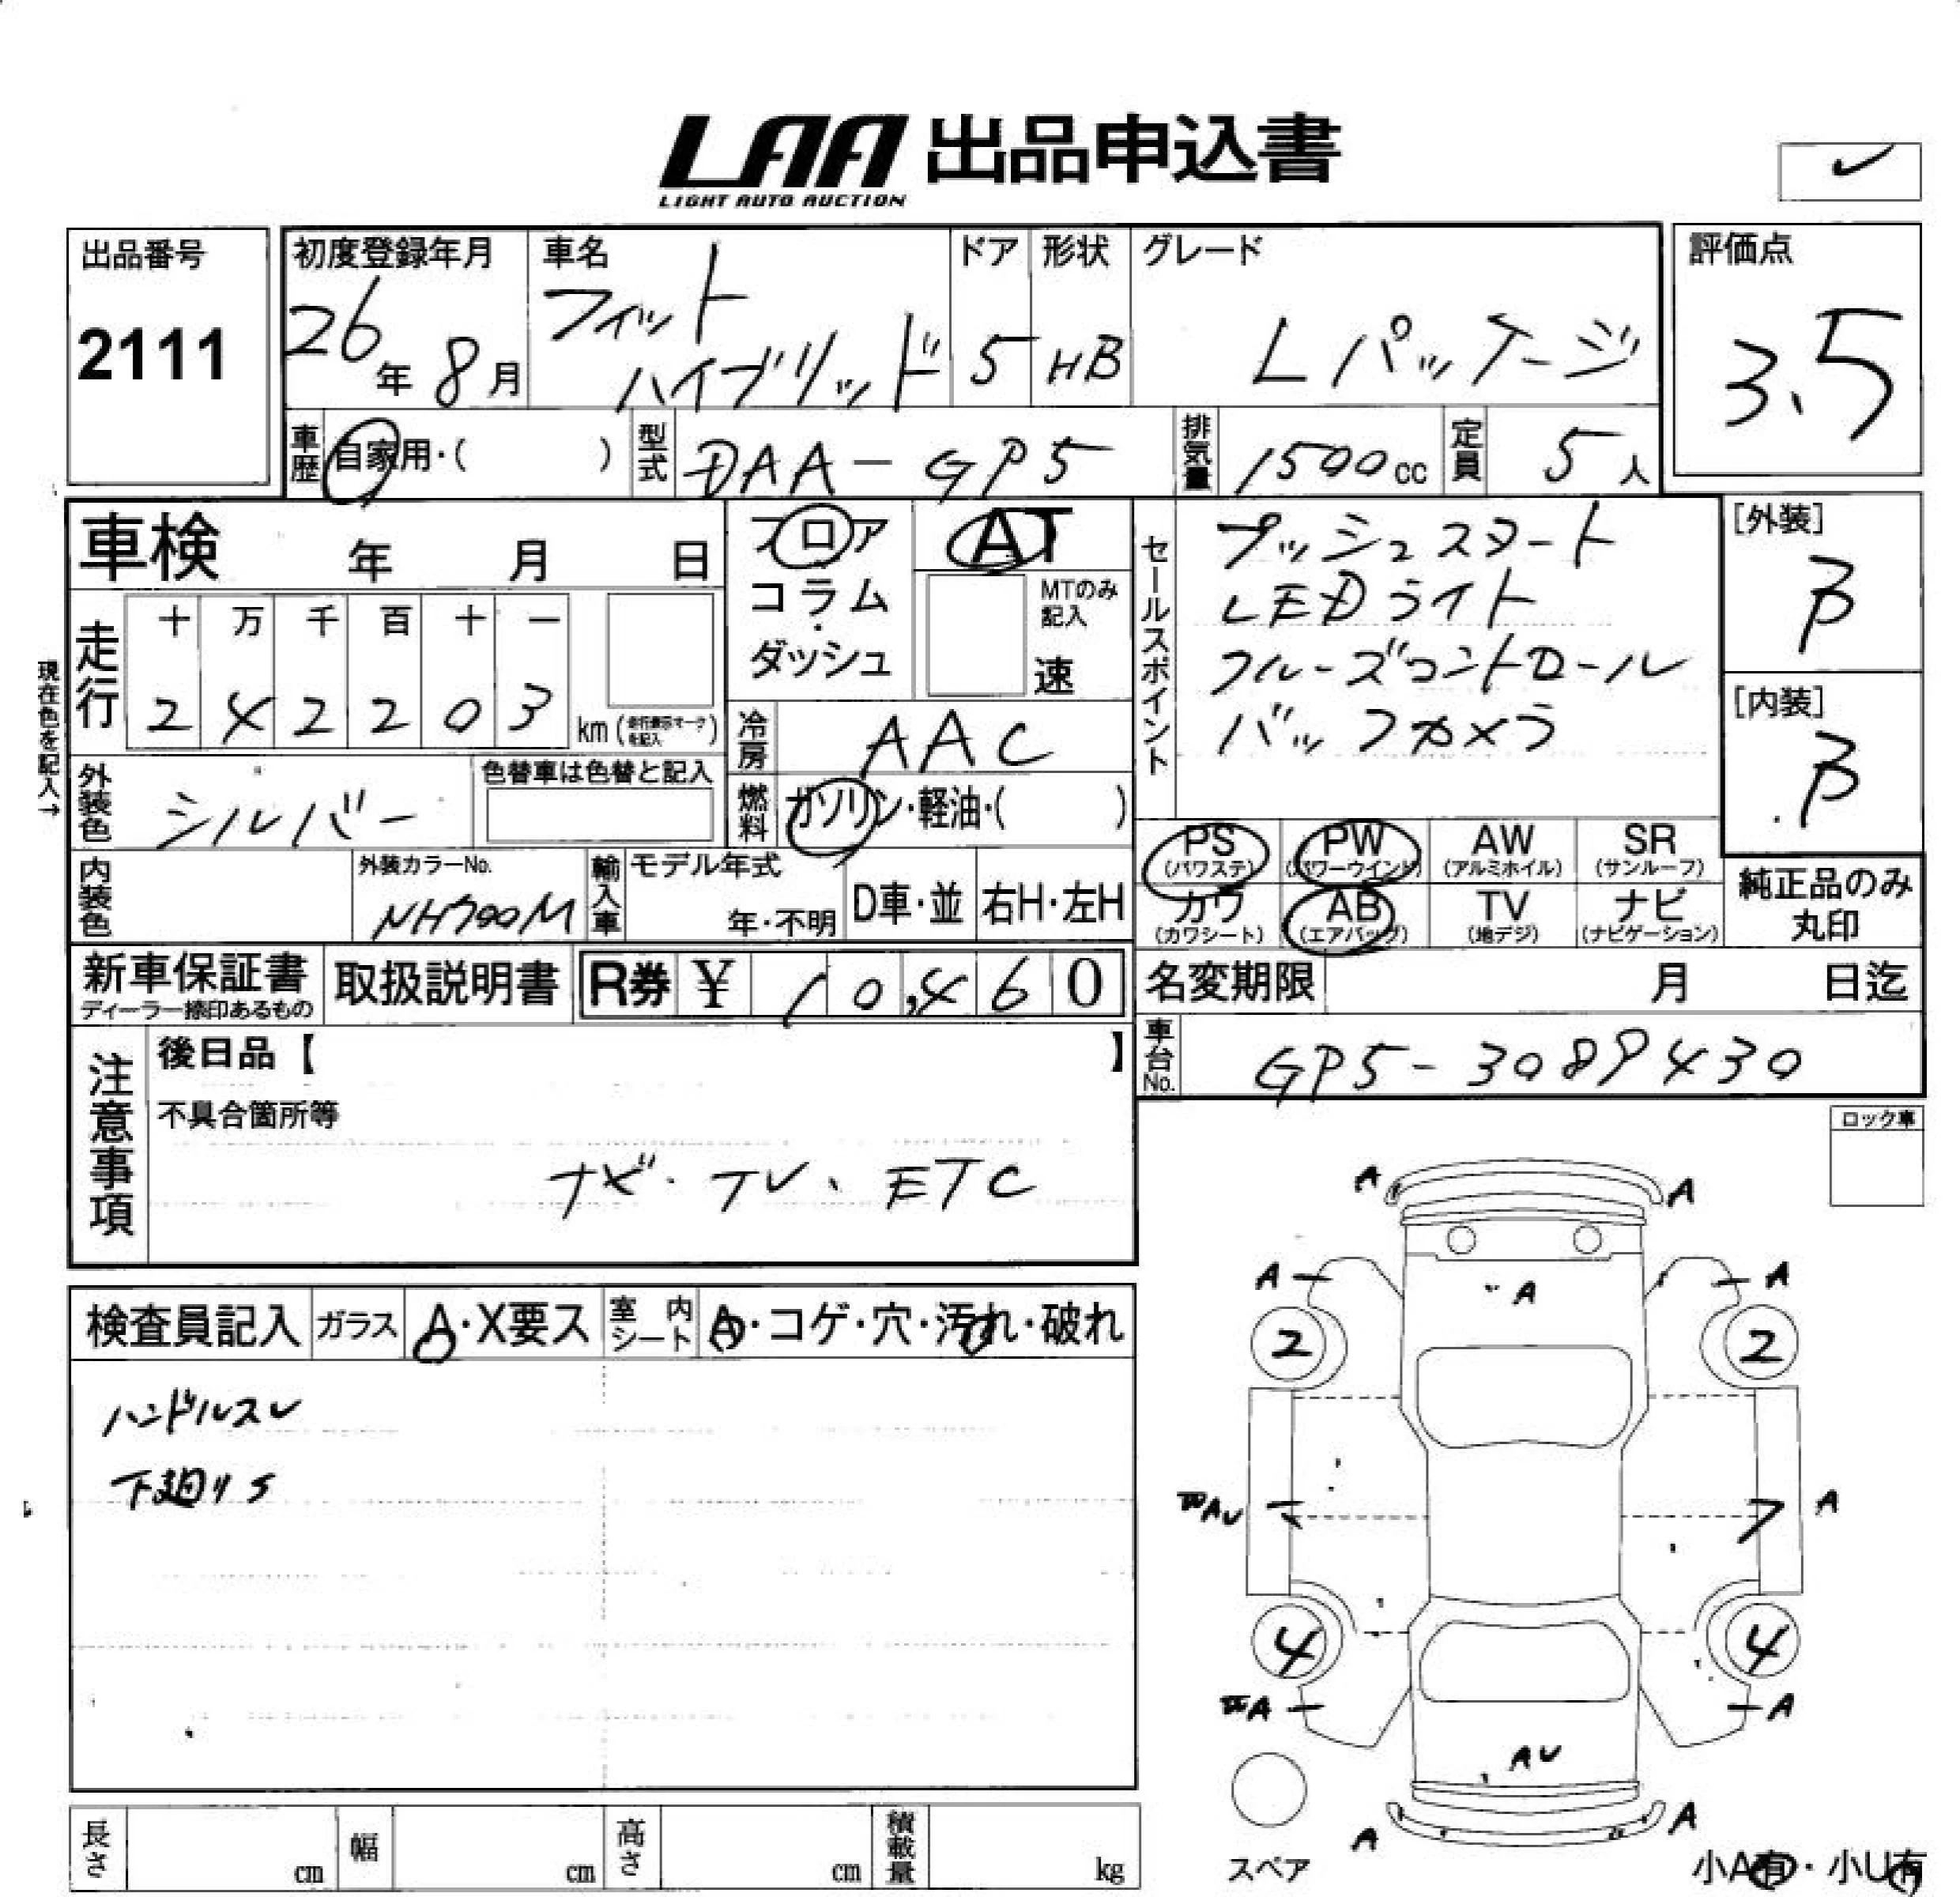 LAA 出品申込書
LIGHT AUTO AUCTION
出品番号
2111
初度登録年月
26年 8月
車名
フィット
ハイブリッド
ドア
5
形状
HB
グレード
Lパッケージ
評価点
3.5
車歴 自家用・( )
型式 DAA-GP5
排気量 1500cc
定員 5人
車検 年 月 日
フロア
コラム
・
ダッシュ
AT
MTのみ
記入
速
セールスポイント
プッシュスタート
LEDライト
クルーズコントロール
バックカメラ
[外装]
B
[内装]
B
現在色を記入→
走行
十 万 千 百 十 一
2 4 2 2 0 3 km
冷房 AAC
外装色 シルバー
色替車は色替と記入
燃料 ガソリン・軽油・( )
PS (パワステ)
PW (パワーウインド)
AW (アルミホイル)
SR (サンルーフ)
カワ (カワシート)
AB (エアバッグ)
TV (地デジ)
ナビ (ナビゲーション)
純正品のみ
丸印
内装色
外装カラーNo.
NH700M
輸入車
モデル年式
年・不明
D車・並
右H・左H
新車保証書
ディーラー捺印あるもの
取扱説明書
R券 ¥ 10,460
名変期限 月 日迄
車台No. GP5-3089430
注意事項
後日品【 】
不具合箇所等
ナビ・TV、ETC
ロック車
検査員記入
ガラス A・X要ス
室内シート A・コゲ・穴・汚れ・破れ
ハンドルスレ
下廻りS
A A
A A A
2 2
AU A
4 4
A A
AU
A A
スペア
小A有・小U有
長さ cm
幅 cm
高さ cm
積載量 kg